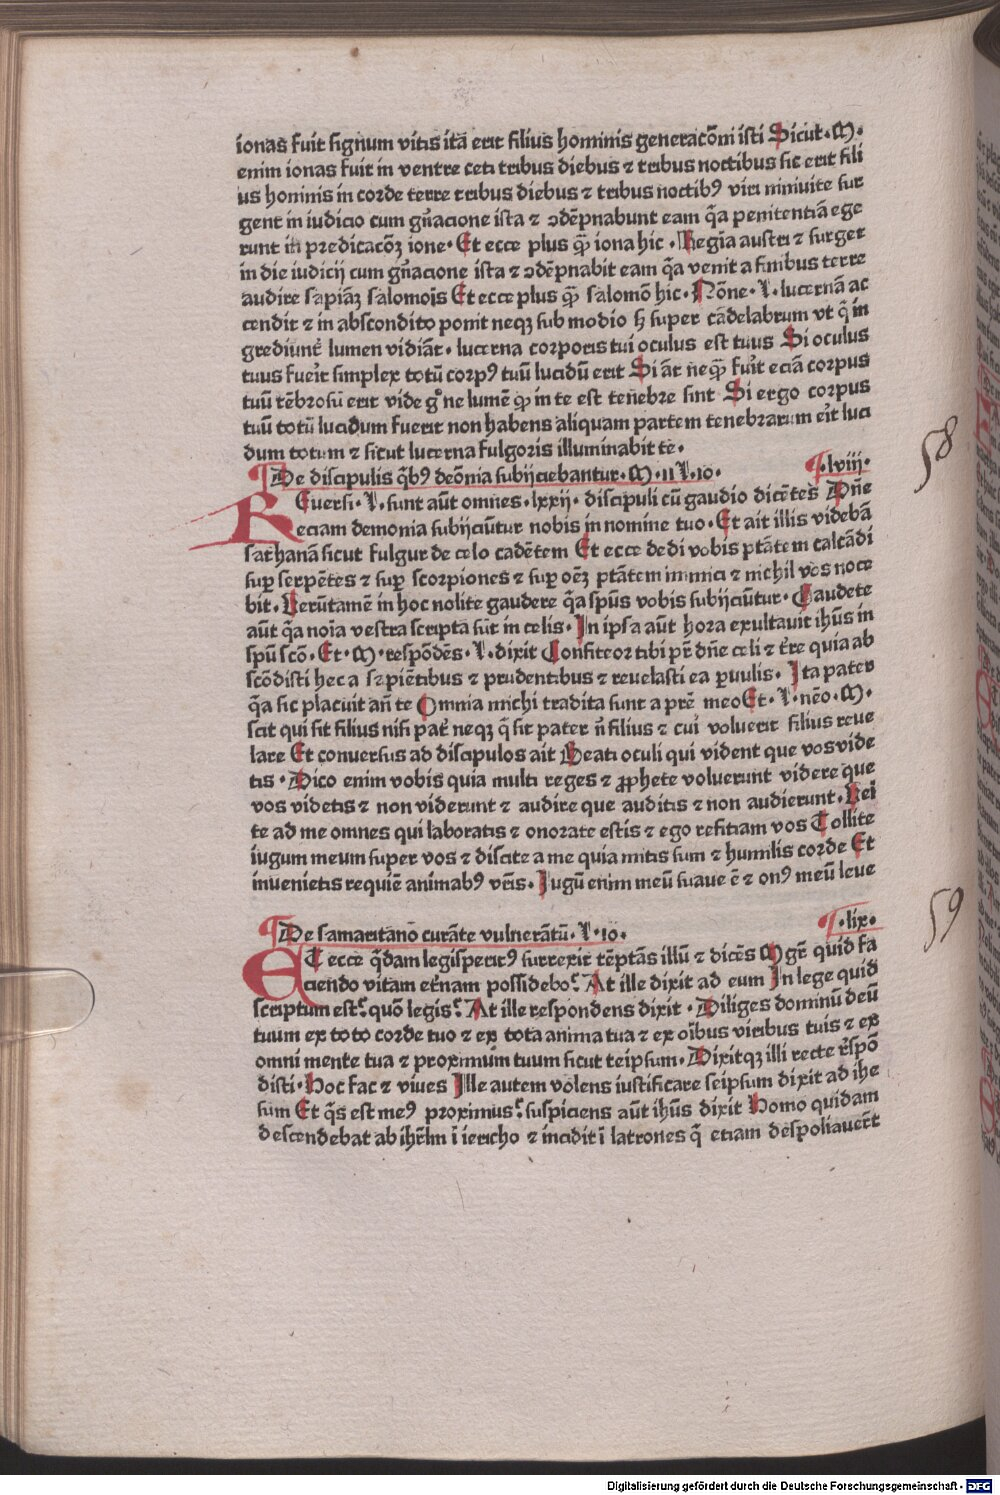 ionas fuit signum vitis itã erit filius hominis generacõni isti Sicut·M·
enim ionas fuit in ventre ceti tribus diebus ⁊ tribus noctibus sic erit fili
us hominis in corde terre tribus diebus ⁊ tribus noctibꝰ viri niniuite sur
gent in iudicio cum gñacione ista ⁊ ↄdẽpnabunt eam q̃a penitentiã ege
runt in predicacõꝫ ione· Et ecce plus qᷓꝫ iona hic ·Regĩa austri ⁊ surget
in die iudicij cum gñacione ista ⁊ ↄdẽpnabit eam q̃a venit a finibus terre
audire sapiãꝫ salomoĩs Et ecce plus qᷓꝫ salomõ hic· Nõne·L·lucernã ac
cendit ⁊ in abscondito ponit neqꝫ sub modio ꜧ super cãdelabrum vt q̃ in
grediunt᷑ lumen vidiãt· lucerna corporis tui oculus est tuus Si oculus
tuus fuẽit simplex totũ corpꝰ tuũ lucidũ erit Si ãt neqᷓꝫ fuĩt eciã corpus
tuũ tẽbrosũ erit vide gͦ ne lumẽ qͩ in te est tenebre sint Si ergo corpus
tuũ totũ lucidum fuerit non habens aliquam partem tenebrarum eĩt luci
dum totum ⁊ sicut lucerna fulgoris illuminabit te·
De discipulis q̃bꝰ deõnia subijciebantur·M·11 L·10· ·lviij·
REuersi·L·sunt aũt omnes·lxxij· discipuli cũ gaudio dicẽtes Dñe
eciam demonia subijciũtur nobis in nomine tuo· Et ait illis videbã
sathanã sicut fulgur de celo cadẽtem Et ecce dedi vobis ptãtem calcãdi
suꝑ serpẽtes ⁊ suꝑ scorpiones ⁊ suꝑ oẽꝫ ptãtem inimici ⁊ nichil vos noce
bit· Verũtamẽ in hoc nolite gaudere q̃a spũs vobis subijciũtur· Gaudete
aũt q̃a noĩa vestra scripta sũt in celis· In ipsa aũt hora exultauit ihũs in
spũ scõ· Et·M·respõdẽs·L·dixit Confiteor tibi pr̃ dñe celi ⁊ t̃re quia ab
scõdisti hec a sapiẽtibus ⁊ prudentibus ⁊ reuelasti ea ꝑuulis· Ita pater
q̃a sic placuit añ te Omnia michi tradita sunt a prẽ meo Et·L·nẽo·M·
scit qui sit filius nisi pat᷑ neqꝫ q̃ sit pater ñ filius ⁊ cui voluerit filius reue
lare Et conuersus ad discipulos ait Beati oculi qui vident que vos vide
tis · Dico enim vobis quia multi reges ⁊ ꝓphete voluerunt videre que
vos videtis ⁊ non viderunt ⁊ audire que auditis ⁊ non audierunt· Vei
te ad me omnes qui laboratis ⁊ onorate estis ⁊ ego reficiam vos Tollite
iugum meum super vos ⁊ discite a me quia mitis sum ⁊ humilis corde Et
inuenietis requiẽ animabꝰ vr̃is· Iugũ enim meũ suaue ẽ ⁊ onꝰ meũ leue
De samaritano curãte vulnerãtũ·L·10· ·lix·
ET ecce q̃dam legisperitꝰ surrexit tẽptãs illũ ⁊ dicẽs Mgr̃ quid fa
ciendo vitam et̃nam possidebo? At ille dixit ad eum In lege quid
scriptum est? quõ legis? At ille respondens dixit · Diliges dominũ deũ
tuum ex toto corde tuo ⁊ ex tota anima tua ⁊ ex oĩbus viribus tuis ⁊ ex
omni mente tua ⁊ proximum tuum sicut teipsum· Dixitqꝫ illi recte r̃spõ
disti· Hoc fac ⁊ viues Ille autem volens iustificare seipsum dixit ad ihe
sum Et q̃s est meꝰ proximus? suspiciens aũt ihũs dixit Homo quidam
descendebat ab ihr̃lm ĩ iericho ⁊ incidit ĩ latrones q̃ etiam despoliauer̃t
58
59
Digitalisierung gefördert durch die Deutsche Forschungsgemeinschaft - DFG